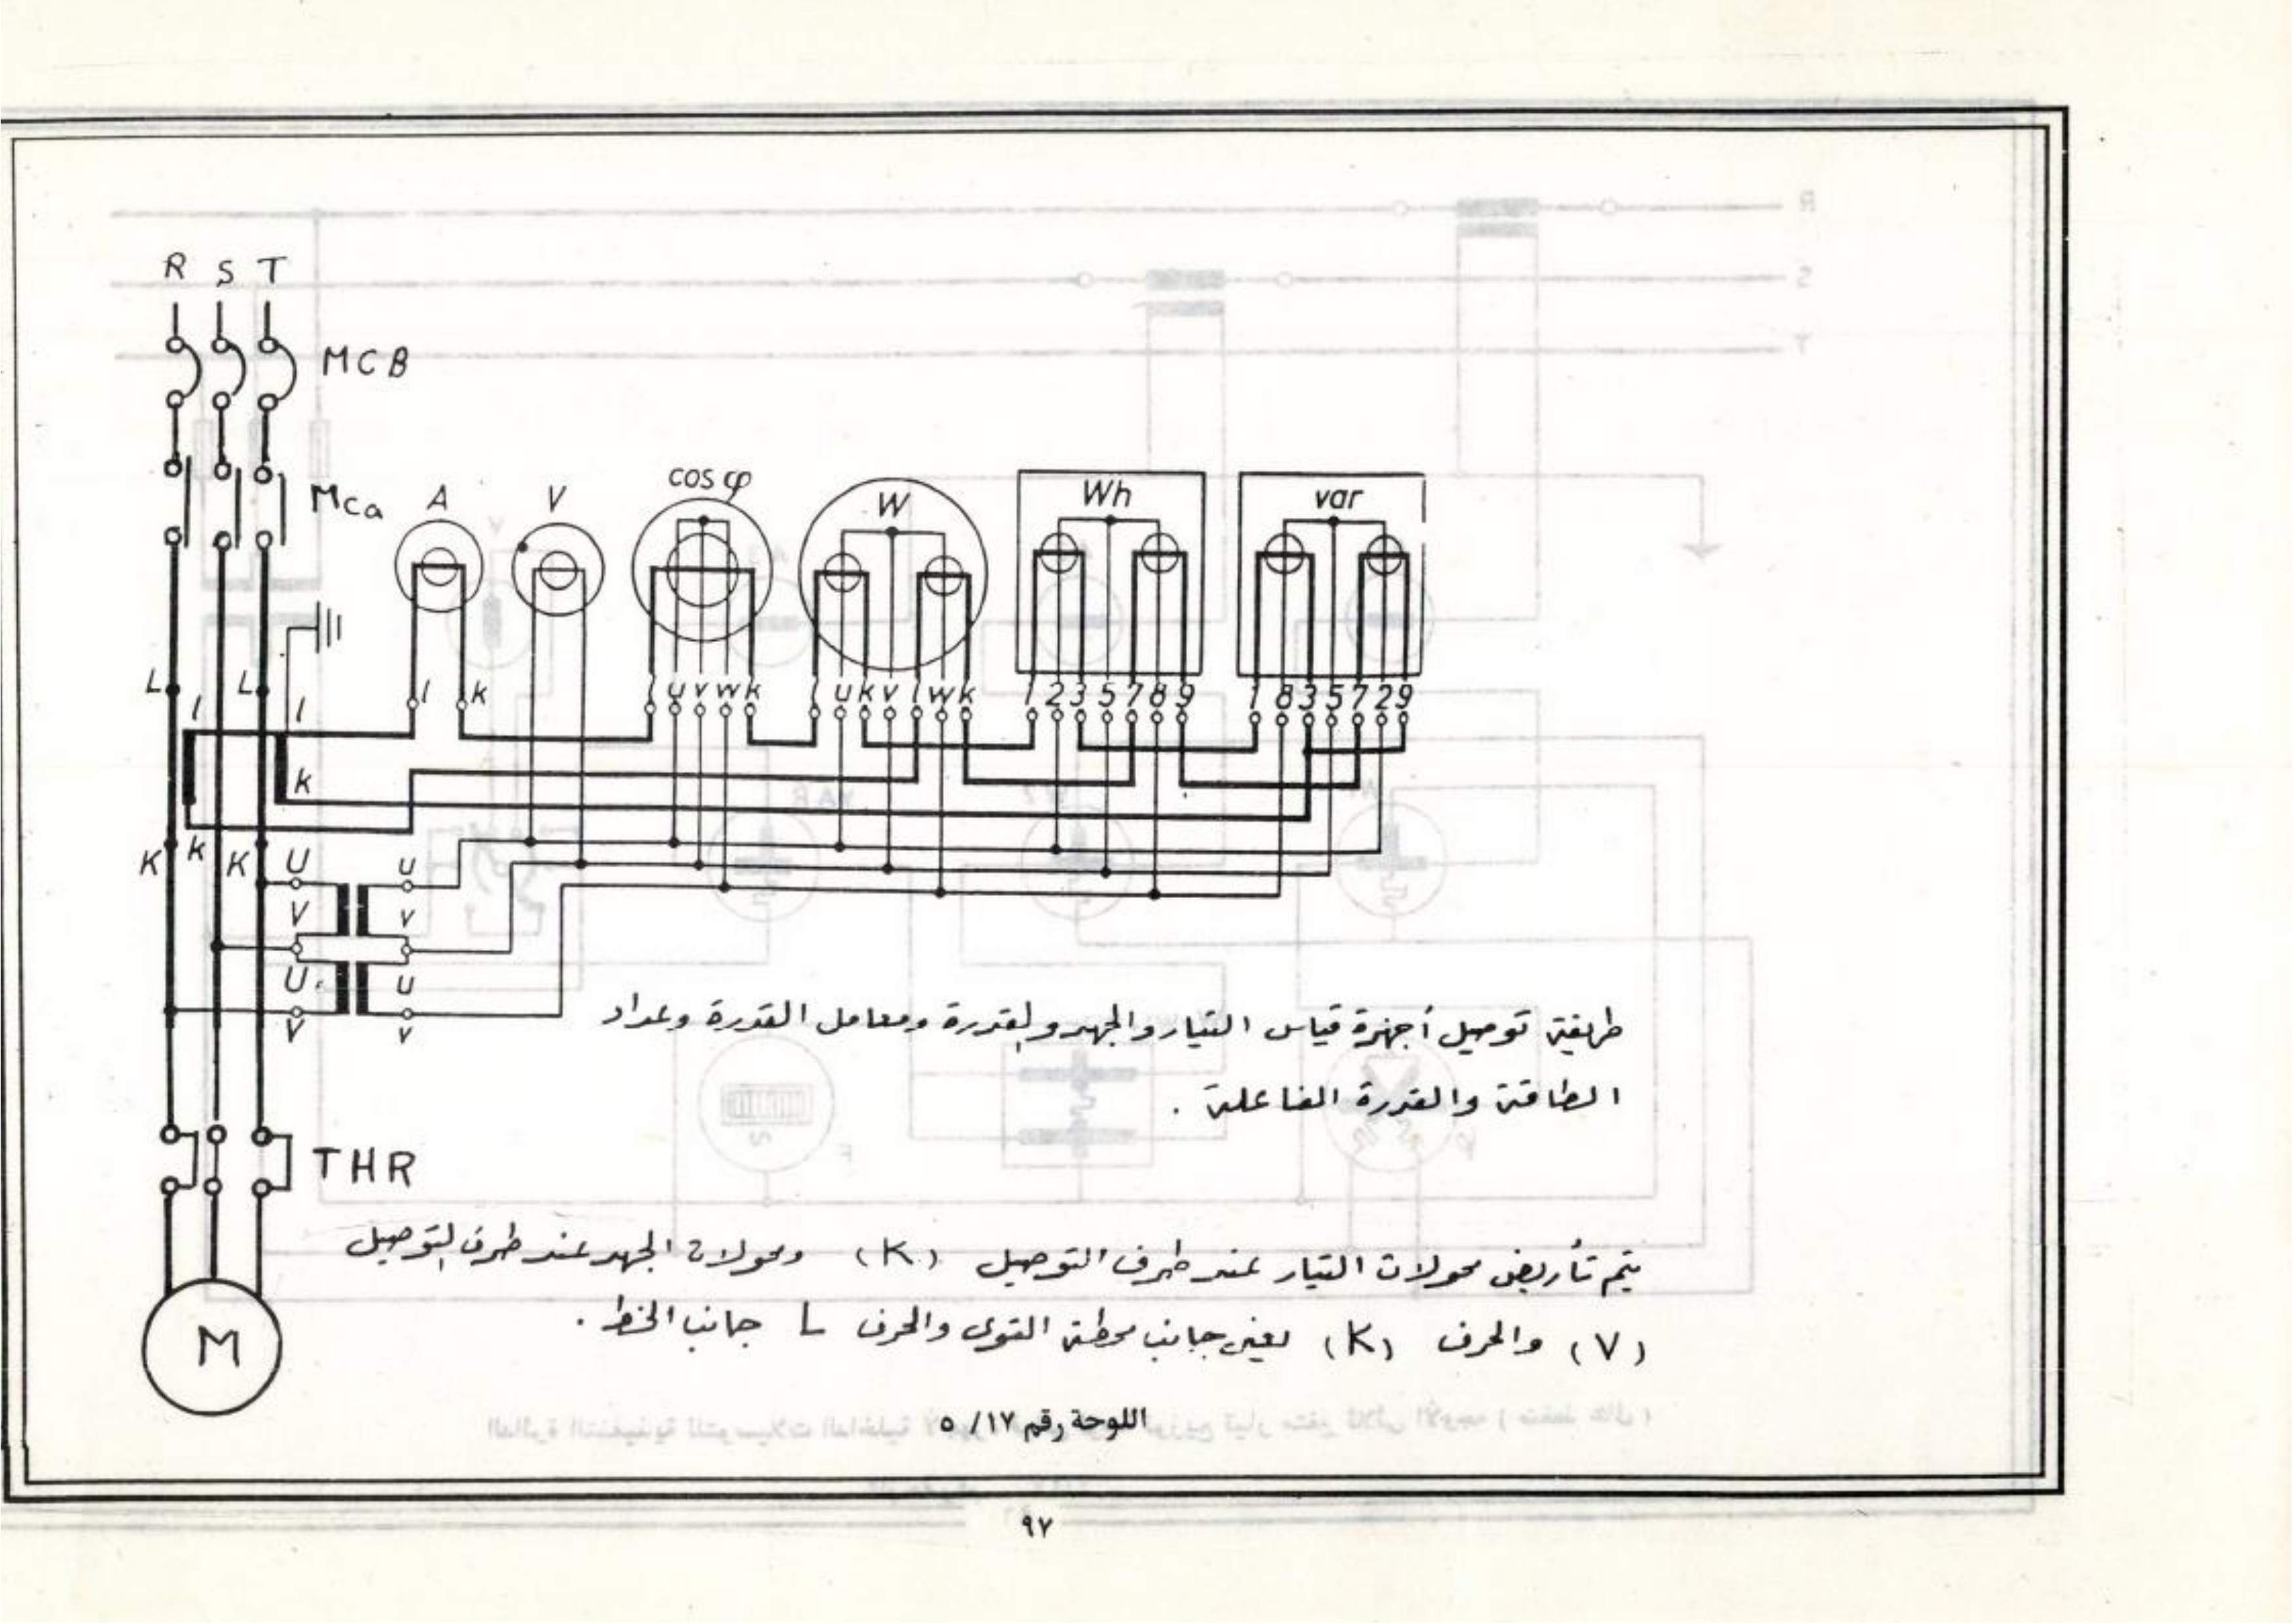 R S T
MCB
MCa
A V cos φ W Wh var
L l L l
l k l u v w k l u k v l w k 1 2 3 5 7 8 9 1 8 3 5 7 2 9
k
K k K U u
V v
U u
V v
طريقة توصيل أجهزة قياس التيار والجهد والقدرة ومعامل القدرة وعداد
الطاقة والقدرة الفاعلة .
THR
يتم تأريض محولات التيار عند طرف التوصيل (K) ومحولات الجهد عند طرف التوصيل
(V) والحرف (K) يعني جانب محطة القوى والحرف L جانب الخط .
M
اللوحة رقم ١٧ / ٥
٩٧